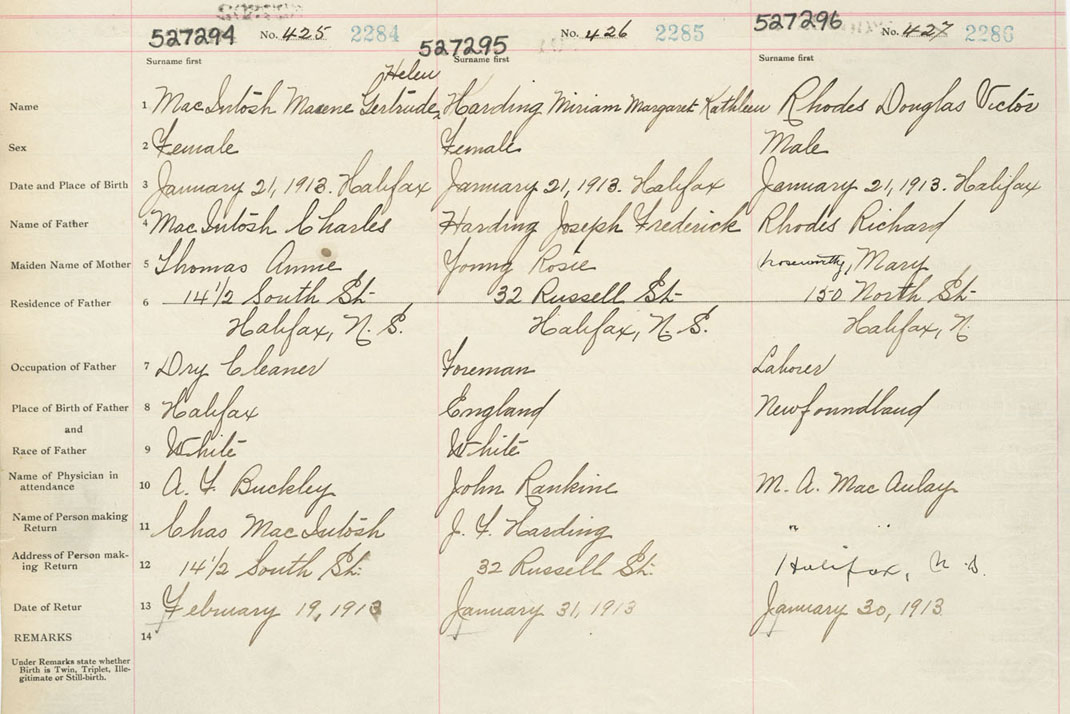 527294 No. 425 2284 527295 No. 426 2285 527296 No. 427 2286
Surname first Surname first Surname first
Helen
Name 1 MacIntosh Maxene Gertrude, Harding Miriam Margaret Kathleen Rhodes Douglas Victor
Sex 2 Female Female Male
Date and Place of Birth 3 January 21, 1913. Halifax January 21, 1913. Halifax January 21, 1913. Halifax
Name of Father 4 MacIntosh Charles Harding Joseph Frederick Rhodes Richard
Maiden Name of Mother 5 Thomas Annie Young Rosie Noseworthy, Mary
Residence of Father 6 14 1/2 South St- 32 Russell St- 150 North St-
Halifax, N. S. Halifax, N. S. Halifax, N.
Occupation of Father 7 Dry Cleaner Foreman Laborer
Place of Birth of Father 8 Halifax England Newfoundland
and
Race of Father 9 White White
Name of Physician in
attendance 10 A. F. Buckley John Rankine M. A. MacAulay
Name of Person making
Return 11 Chas MacIntosh J. F. Harding " "
Address of Person mak-
ing Return 12 14 1/2 South St. 32 Russell St. Halifax, N.S.
Date of Retur 13 February 19, 1913 January 31, 1913 January 30, 1913
REMARKS 14
Under Remarks state whether
Birth is Twin, Triplet, Ille-
gitimate or Still-birth.